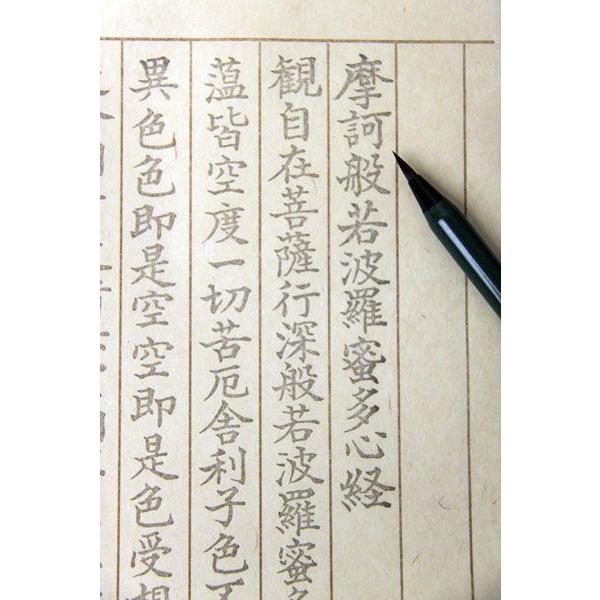 摩訶般若波羅蜜多心経
観自在菩薩行深般若波羅蜜多
薀皆空度一切苦厄舎利子色不
異色色即是空空即是色受想